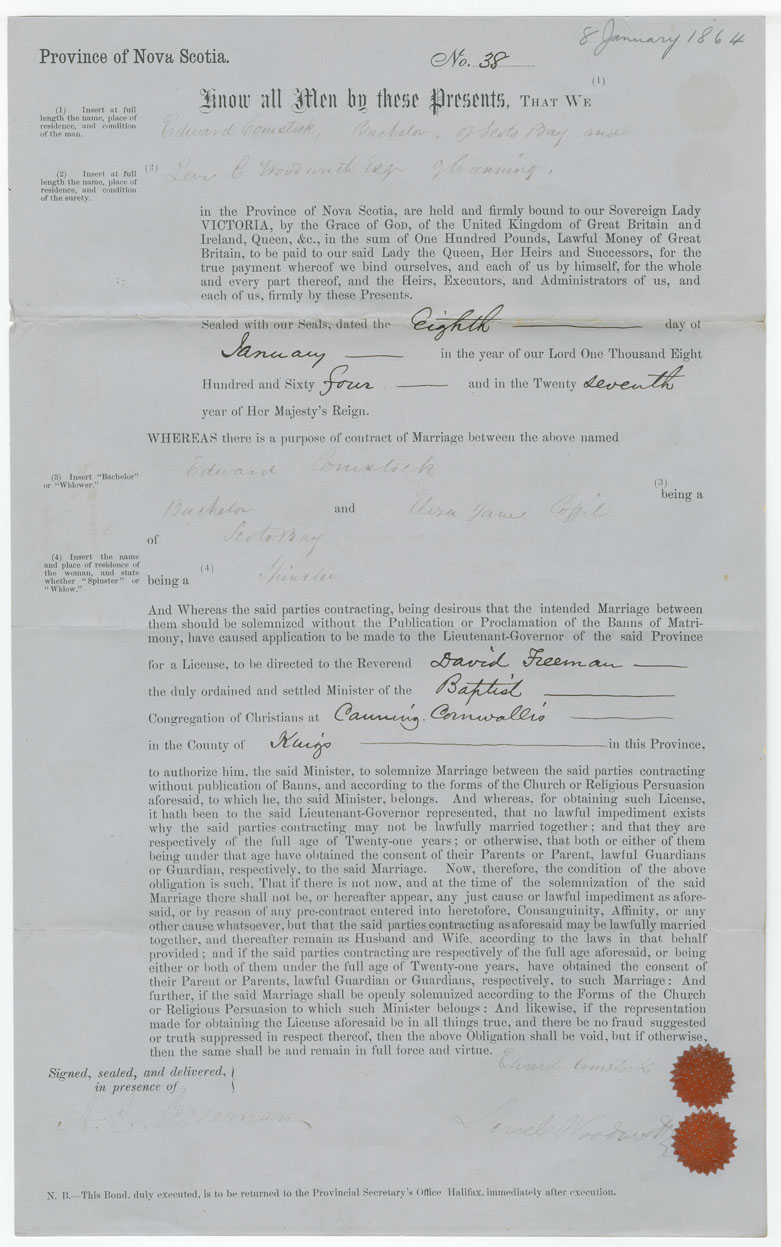 8 January 1864
Province of Nova Scotia.
No. 38
(1)
Know all Men by these Presents, THAT WE
(1) Insert at full
length the name, place of
residence, and condition
of the man.
Edward Comstock, Bachelor, of Scots Bay and
(2) Insert at full
length the name, place of
residence, and condition
of the surety.
(2)
C Woodworth Esqr of Canning.
in the Province of Nova Scotia, are held and firmly bound to our Sovereign Lady
VICTORIA, by the Grace of GOD, of the United Kingdom of Great Britain and
Ireland, Queen, &c., in the sum of One Hundred Pounds, Lawful Money of Great
Britain, to be paid to our said Lady the Queen, Her Heirs and Successors, for the
true payment whereof we bind ourselves, and each of us by himself, for the whole
and every part thereof, and the Heirs, Executors, and Administrators of us, and
each of us, firmly by these Presents.
Sealed with our Seals, dated the Eighth day of
January in the year of our Lord One Thousand Eight
Hundred and Sixty four and in the Twenty seventh
year of Her Majesty's Reign.
WHEREAS there is a purpose of contract of Marriage between the above named
Edward Comstock
(3) Insert "Bachelor"
or "Widower."
(3)
being a
Bachelor and Eliza Jane Coffil
of Scots Bay
(4) Insert the name
and place of residence of
the woman, and state
whether "Spinster" or
"Widow."
(4)
being a Spinster
And Whereas the said parties contracting, being desirous that the intended Marriage between
them should be solemnized without the Publication or Proclamation of the Banns of Matri-
mony, have caused application to be made to the Lieutenant-Governor of the said Province
for a License, to be directed to the Reverend David Freeman
the duly ordained and settled Minister of the Baptist
Congregation of Christians at Canning. Cornwallis
in the County of Kings in this Province,
to authorize him, the said Minister, to solemnize Marriage between the said parties contracting
without publication of Banns, and according to the forms of the Church or Religious Persuasion
aforesaid, to which he, the said Minister, belongs. And whereas, for obtaining such License,
it hath been to the said Lieutenant-Governor represented, that no lawful impediment exists
why the said parties contracting may not be lawfully married together; and that they are
respectively of the full age of Twenty-one years; or otherwise, that both or either of them
being under that age have obtained the consent of their Parents or Parent, lawful Guardians
or Guardian, respectively, to the said Marriage. Now, therefore, the condition of the above
obligation is such, That if there is not now, and at the time of the solemnization of the said
Marriage there shall not be, or hereafter appear, any just cause or lawful impediment as afore-
said, or by reason of any pre-contract entered into heretofore, Consanguinity, Affinity, or any
other cause whatsoever, but that the said parties contracting as aforesaid may be lawfully married
together, and thereafter remain as Husband and Wife, according to the laws in that behalf
provided; and if the said parties contracting are respectively of the full age aforesaid, or being
either or both of them under the full age of Twenty-one years, have obtained the consent of
their Parent or Parents, lawful Guardian or Guardians, respectively, to such Marriage: And
further, if the said Marriage shall be openly solemnized according to the Forms of the Church
or Religious Persuasion to which such Minister belongs: And likewise, if the representation
made for obtaining the License aforesaid be in all things true, and there be no fraud suggested
or truth suppressed in respect thereof, then the above Obligation shall be void, but if otherwise,
then the same shall be and remain in full force and virtue.
Edward Comstock
Signed, sealed, and delivered,
in presence of
Freeman
N. B.—This Bond, duly executed, is to be returned to the Provincial Secretary's Office Halifax, immediately after execution.